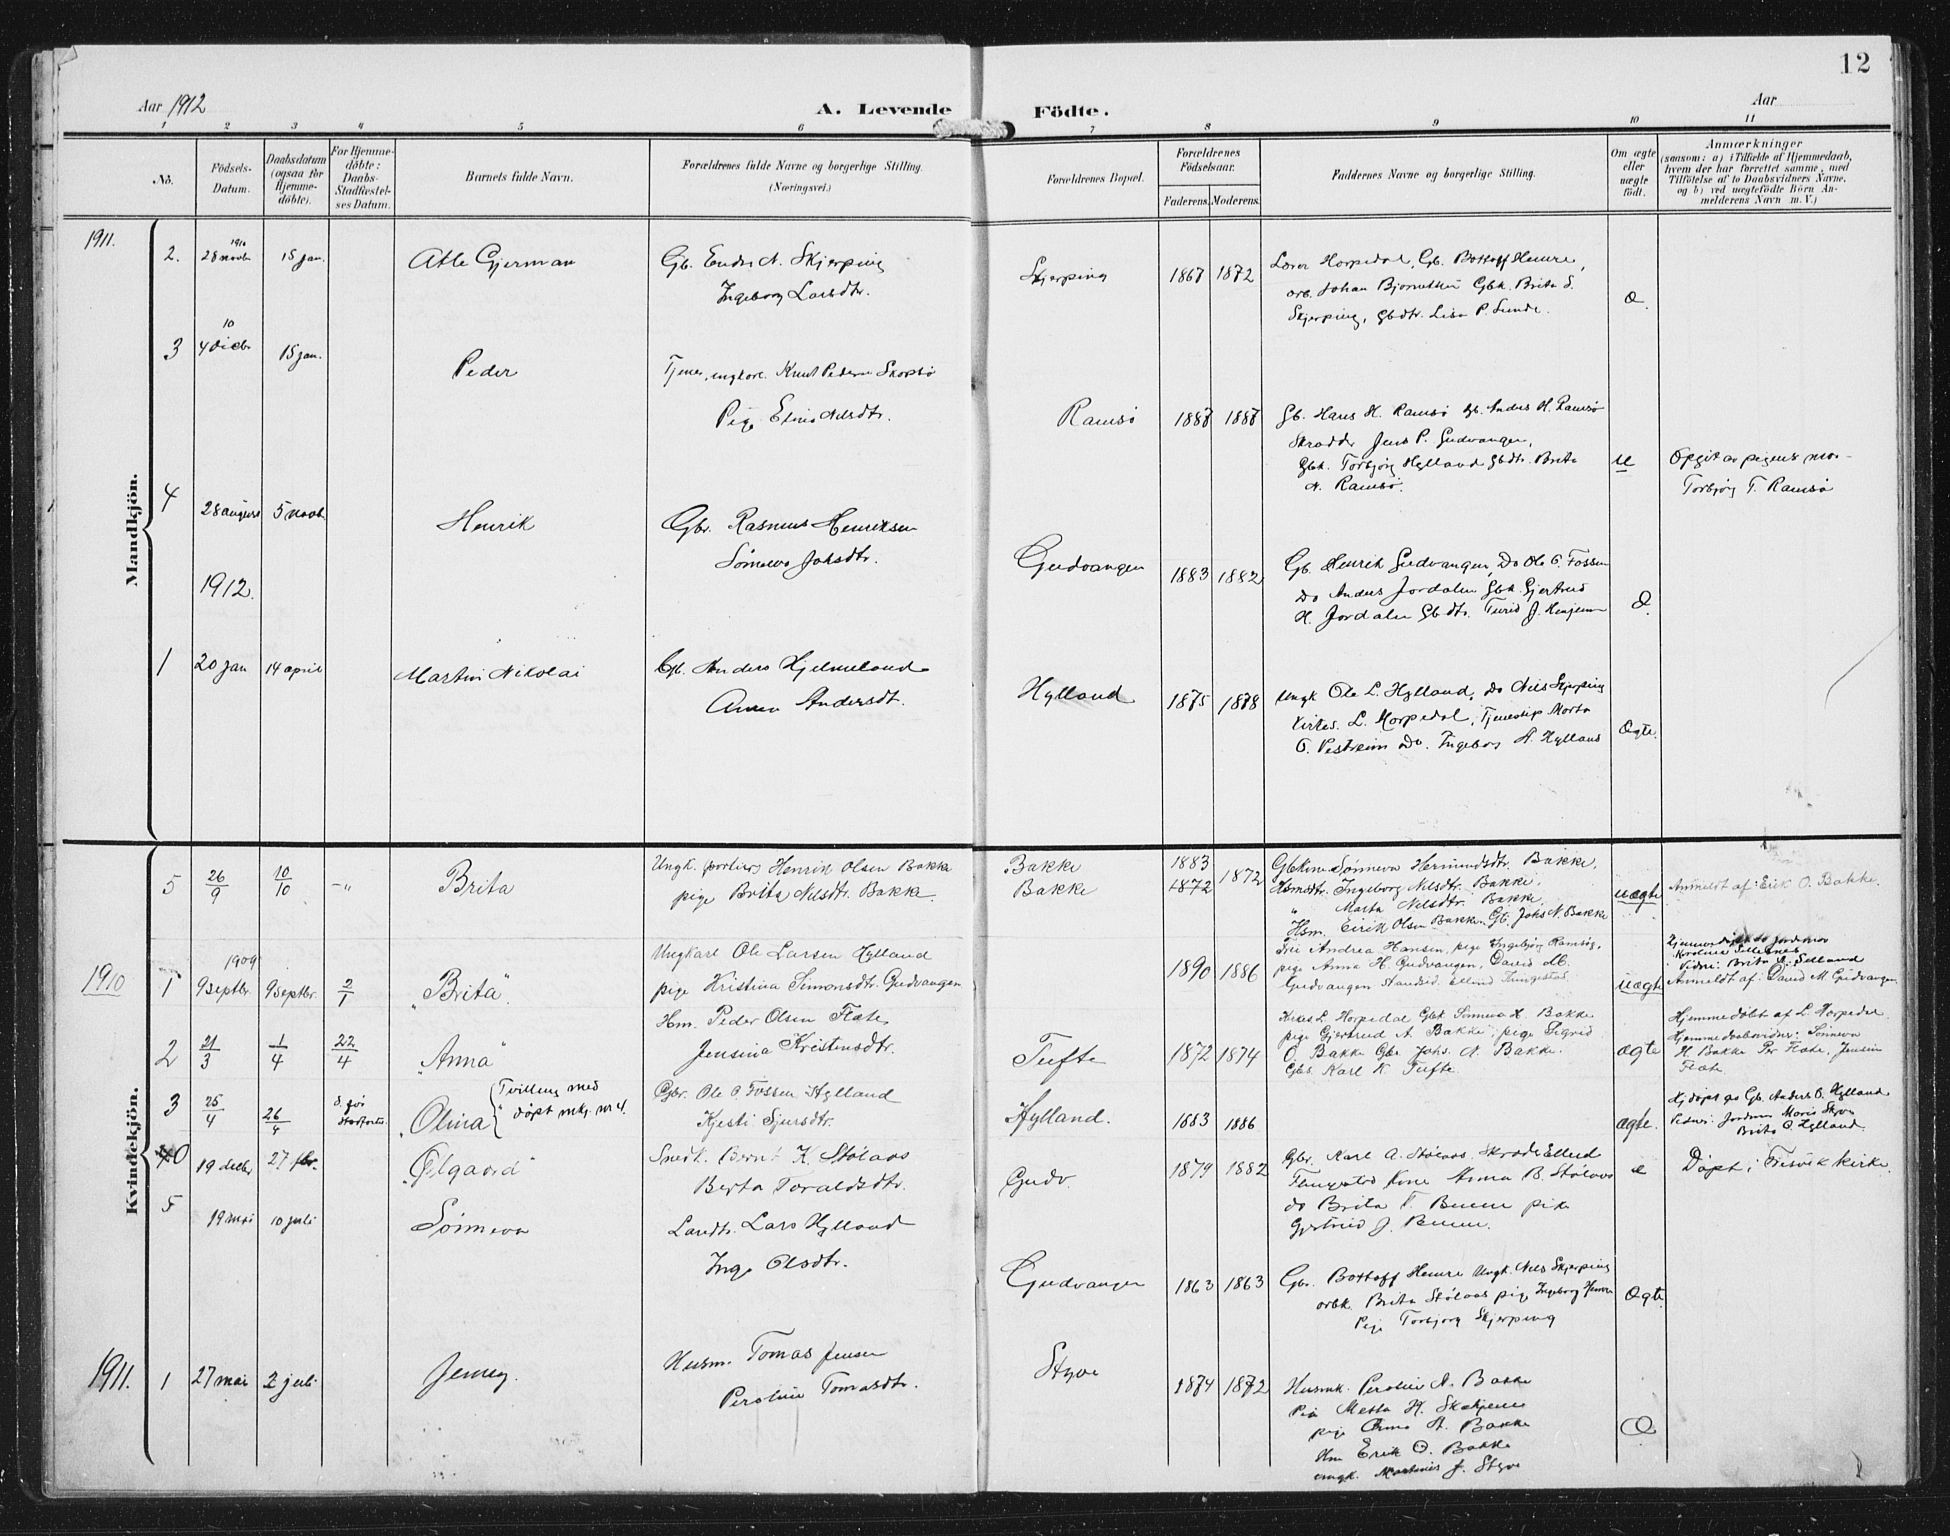 12
Aar 1912
A. Levende Födte.
Aar
1 2 3 4 5 6 7 8 9 10 11
No.
Födsels-Datum.
Daabsdatum (ogsaa for Hjemme-döbte).
For Hjemme-döbte: Daabs-Stadfæstel-ses Datum.
Barnets fulde Navn.
Forældrenes fulde Navne og borgerlige Stilling. (Næringsvei.)
Forældrenes Bopæl.
Forældrenes Födselsaar.
Faderens. Moderens.
Faddernes Navne og borgerlige Stilling.
Om ægte eller uægte födt.
Anmærkninger
(saasom: a) i Tilfælde af Hjemmedaab,
hvem der har forrettet samme, med
Tilföielse af to Daabsvidners Navne,
og b) ved uægtefödte Börn An-
melderens Navn m. V.)
Mandkjön.
1911.
2. 1910 28 novbr 15 jan. Atle Gjerman
Gb. Endre A. Skjerping
Ingeborg Larsdtr.
Skjerping 1867 1872
Lærer Horpedal, Gb. Bottolf Hemre,
arb. Johan Gbk. Brita S.
Skjerping, Gbdtr. Lisa P. Sunde.
Æ.
3 10 4 decbr 15 jan. Peder
Tjener, ungkarl. Knut Pedersen
Pige Nilsdtr.
Ramsø 1887 1887
Gb. Hans H. Ramsø Gb. Anders H. Ramsø
Skrædder Jens P. Gudvangen,
Gbk. Torbjørg Hylland Gbdtr. Brita
N. Ramsø.
U
Opgit av pigens mor
Torbjørg T. Ramsø
4 28 august 5 novb. Henrik
Gbr. Rasmus Henriksen
Sømeva Johsdtr.
Gudvangen 1883 1882
Gb. Henrik Gudvangen, Do Ole O. Fossen
Do Anders Jordalen Gbk. Gjertrud
H. Jordalen Gbdtr. Turid J.
Æ.
1912.
1 20 jan 14 april Martin Nikolai
Gb. Anders Hjelmeland
Anna Andersdt.
Hylland 1875 1878
Ungk Ole L. Hylland, Do Nils Skjerping
Kirkes. L. Horpedal, Tjenestep Marta
O. Vestreim Do. Ingeborg A. Hylland
Ægte.
Kvindekjön.
5 26/9 10/10 -"- Brita
Ungk. portier Henrik Olsen Bakke
pige Brita Nilsdtr. Bakke.
Bakke
Bakke
1883
1872 1872
Gbkone Sønneva Hermundsdtr. Bakke,
Hsmdtr. Ingeborg Nilsdtr. Bakke,
" Marta Nilsdtr. Bakke,
Hsm. Eirik Olsen Bakke, Gb. Johs N. Bakke
uægte
Anmeldt af: Erik O. Bakke.
1910
1 1909 9 septbr. 9 septbr. 2/1 "Brita".
Ungkarl Ole Larsen Hylland
pige Kristina Simonsdtr. Gudvangen
1890 1886
Andrea Hansen, pige Ingebjørg Ramsø,
pige Anna H. Gudvangen, David M.
Gudvangen
uægte
Vidner: Brita Selland
Anmeldt af: David M. Gudvangen
2 21/3 1/4 22/4 "Anna"
Hm. Peder Olsen Flate
Jensina Kristensdtr.
Tufte 1872 1874
Kirkes L. Horpedal Gbk Sønneva H. Bakke
pige Gjertrud A. Bakke, pige Sigrid
O. Bakke Gbr Johs. N. Bakke.
Gbs. Karl K Tufte.
ægte
Hjemmedøbt af L. Horpedal
Hjemmedaabsvidner: Sønneva
H. Bakke Per Flate, Jensine
Flate.
3 25/4 26/4 "Olina" {Tvilling med
døpt mkj. nr 4.
Gbr. Ole O. Fossen Hylland
Kjesti Sjursdtr.
Hylland. 1883 1886
ægte.
Hj.døpt av Gb. Anders O. Hylland
Vidner: Jordmor Maria Styve
Brita O Hylland.
40 19 decbr 27 "Olgaard"
Snedk. Bernt K. Stølaas
Berta Toraldsdtr.
Gudv. 1879 1882
Gbr. Karl A. Stølaas, Skrædder Ellend
Tungestad Kone Anna B. Stølaas
do Brita T. pike
Gjertrud J.
æ
Døpt i Fresvik kirke.
5 19 mai 10 juli Sønneva
Landh. Lars Hylland
Inga Olsdtr.
Gudvangen 1863 1863
Gbr. Bottolf Hemre Ungk. Nils Skjerping
arbk. Brita Stølaas pige Ingeborg Hemre
Pige Torbjørg Skjerping
Ægte.
1911. 1 27 mai 2 juli Jenny.
Husm. Tomas Jensen
Peroline Tomasdtr.
Styve 1874 1872
Husmk. Peroline N. Bakke
Pige Metta H.
pige Anna A. Bakke
Hm Erik O. Bakke
ungk. Martinus J. Styve
Æ